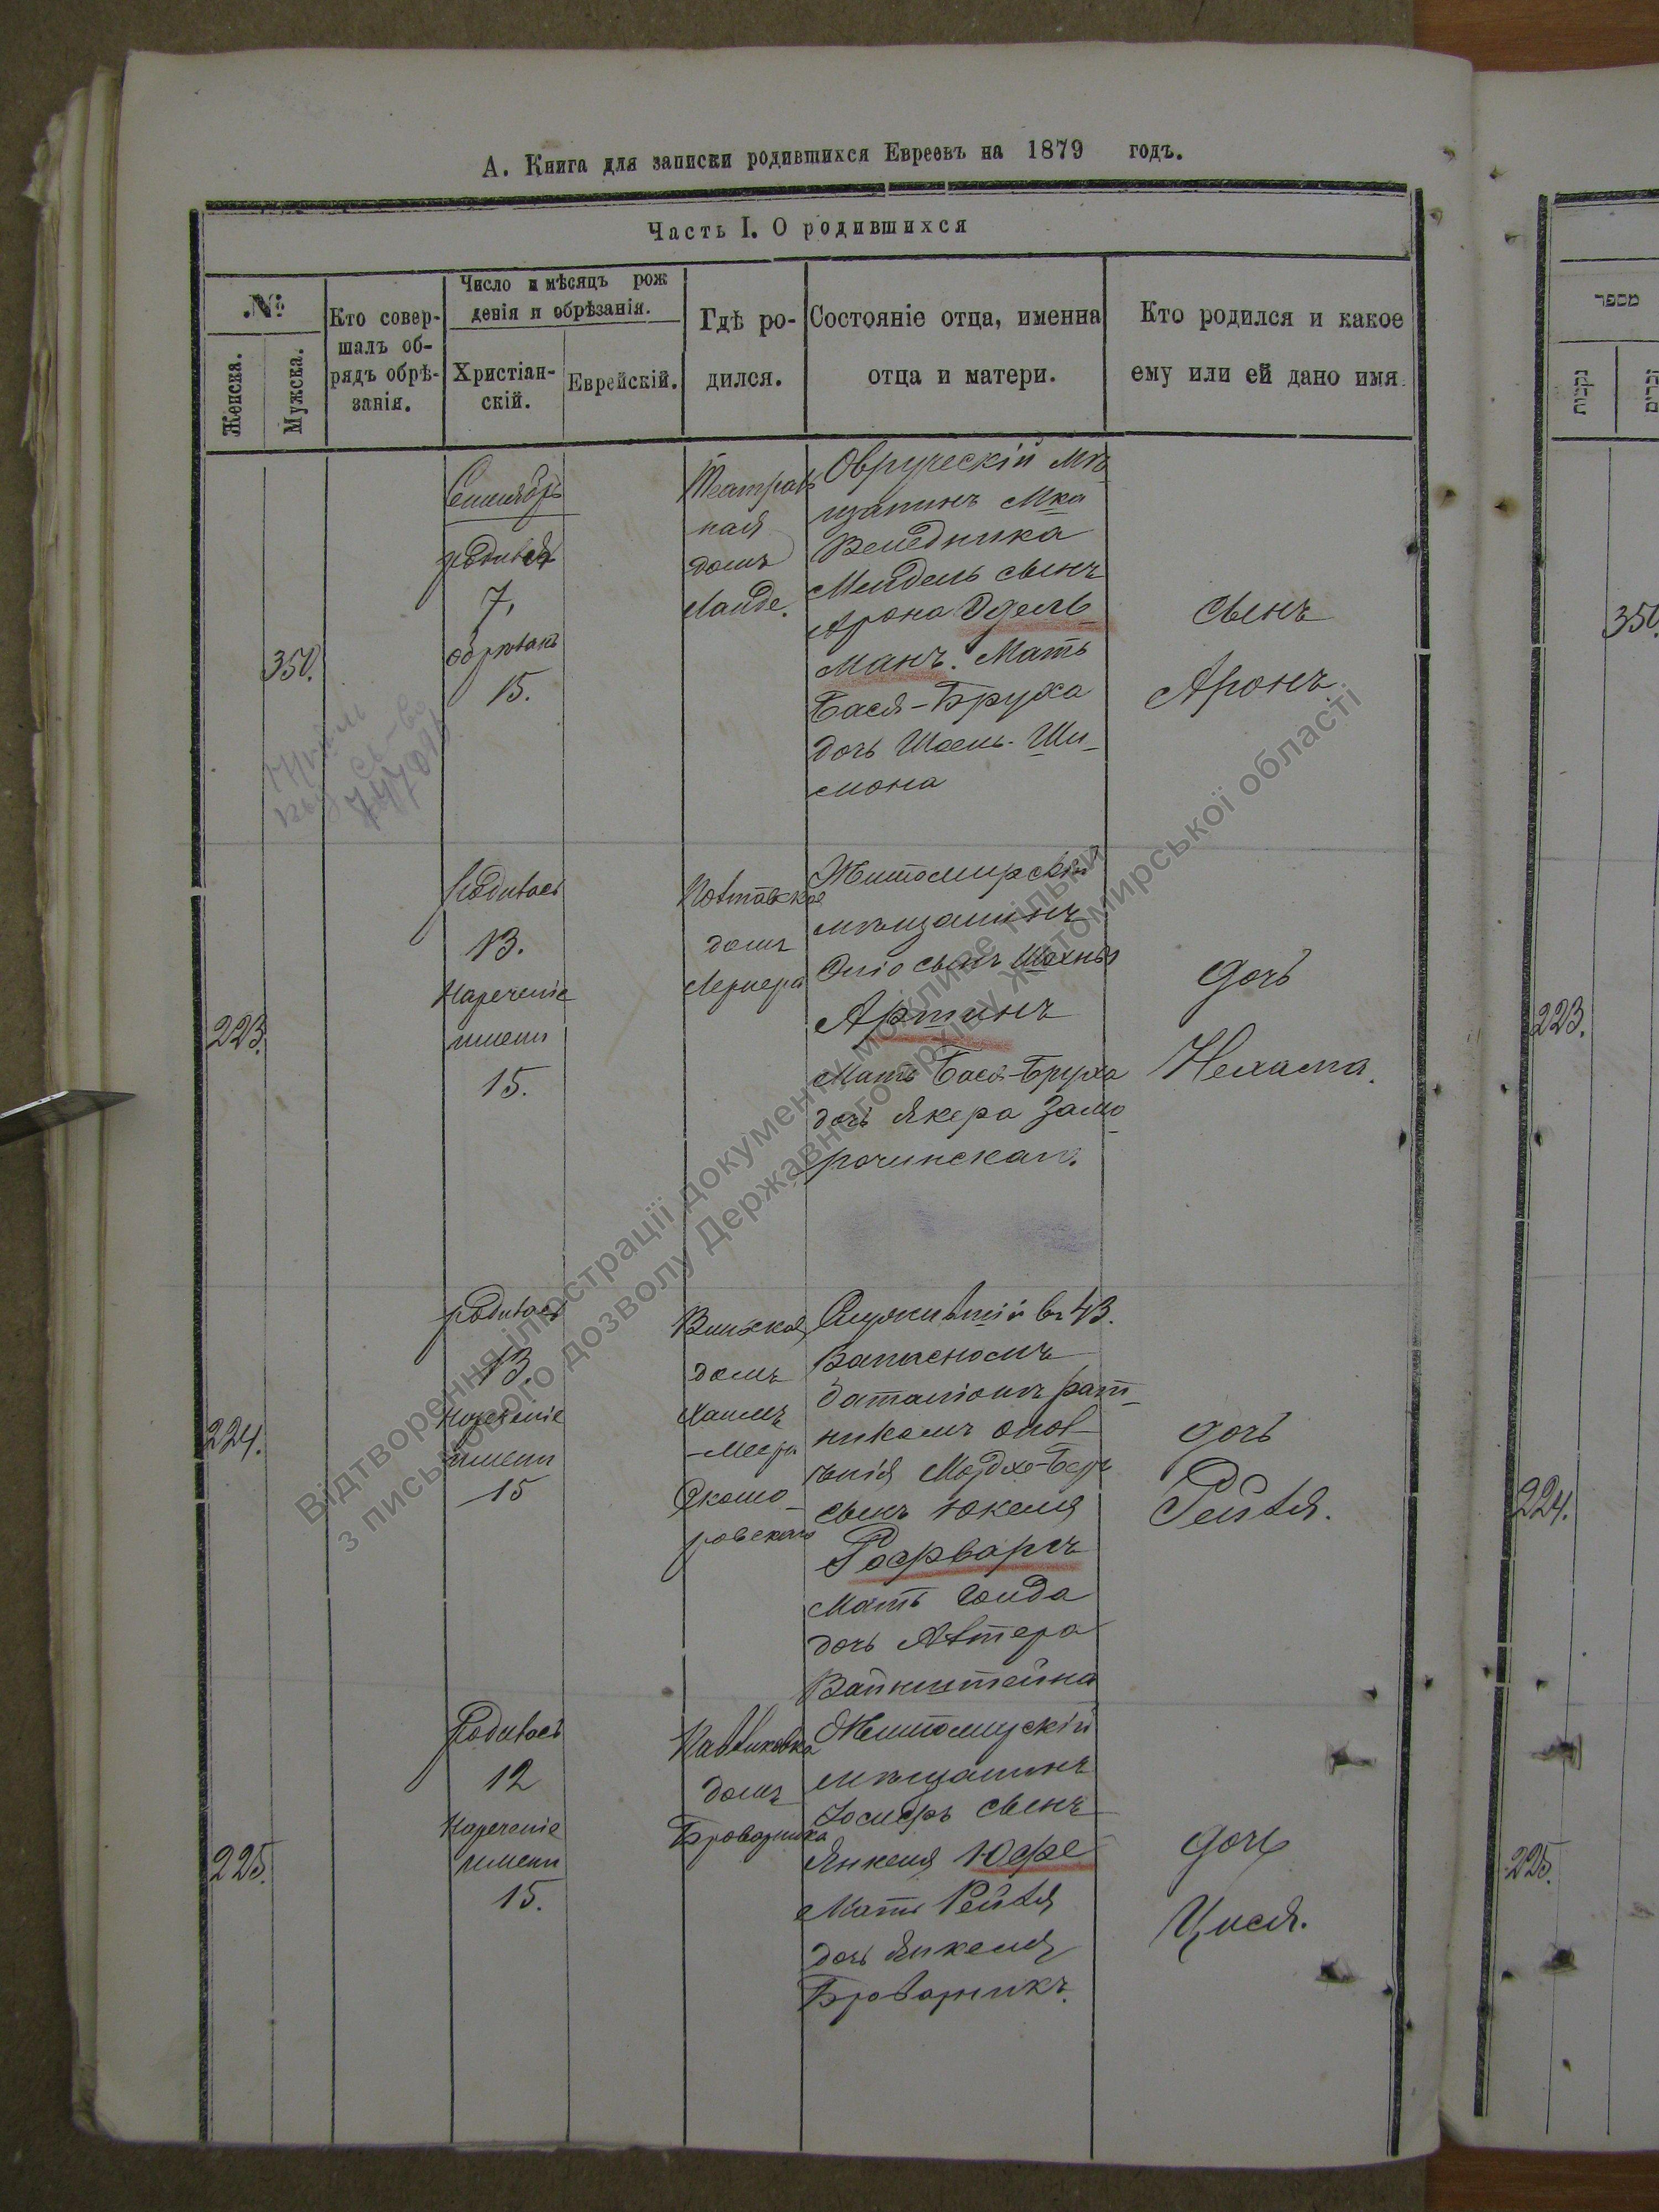 А. Книга для записки родившихся Евреевъ на 1879 годъ.
Часть I. О родившихся
№
Женска.
Мужска.
Кто совер-
шалъ об-
рядъ обрѣ-
занія.
Число и мѣсяцъ рож
денія и обрѣзанія.
Христіан-
скій.
Еврейскій.
Гдѣ ро-
дился.
Состояніе отца, именна
отца и матери.
Кто родился и какое
ему или ей дано имя
350.
Сентябрь
родился
7,
обрѣзанъ
15.
Театраль
ная
домъ
Ланде.
Овруческій мѣ
щанинъ М-ка
Веледника
Мендель сынъ
Арона Эдель
манъ. Мать
Бася-Бруха
дочь Шаель-Ши-
мона
сынъ
Аронъ
223.
Родилась
13.
Нареченіе
имени
15.
домъ
Лернера
Житомирскій
мѣщанинъ
Эліо сынъ Шахны
Артинъ
Мать Бася-Бруха
дочь Якера Замо-
рочинская.
дочь
Нехама.
224.
родилась
13.
Нареченіе
имени
15
домъ
Хаимъ
-Меера
Скомо-
ровскаго
Служившій въ 43.
Запасномъ
баталіонѣ рат-
никомъ опол-
ченія Мордхо-Беръ
сынъ Юкеля
Росфваргъ
Мать Гоида
дочь Алтера
Вайнштейна
дочь
Рейзля.
225.
Родилась
12
Нареченіе
имени
15.
Павликовка
домъ
Броварника
Житомирскій
мѣщанинъ
Іосифъ сынъ
Янкеля Юфе
Мать Рейзля
дочь Янкеля
Броварникъ.
дочь
Цися.
מספר
נקבות
זכרים
350.
223.
224.
225.
Відтворення ілюстрації документу можливе тільки
з письмового дозволу Державного архіву Житомирської області